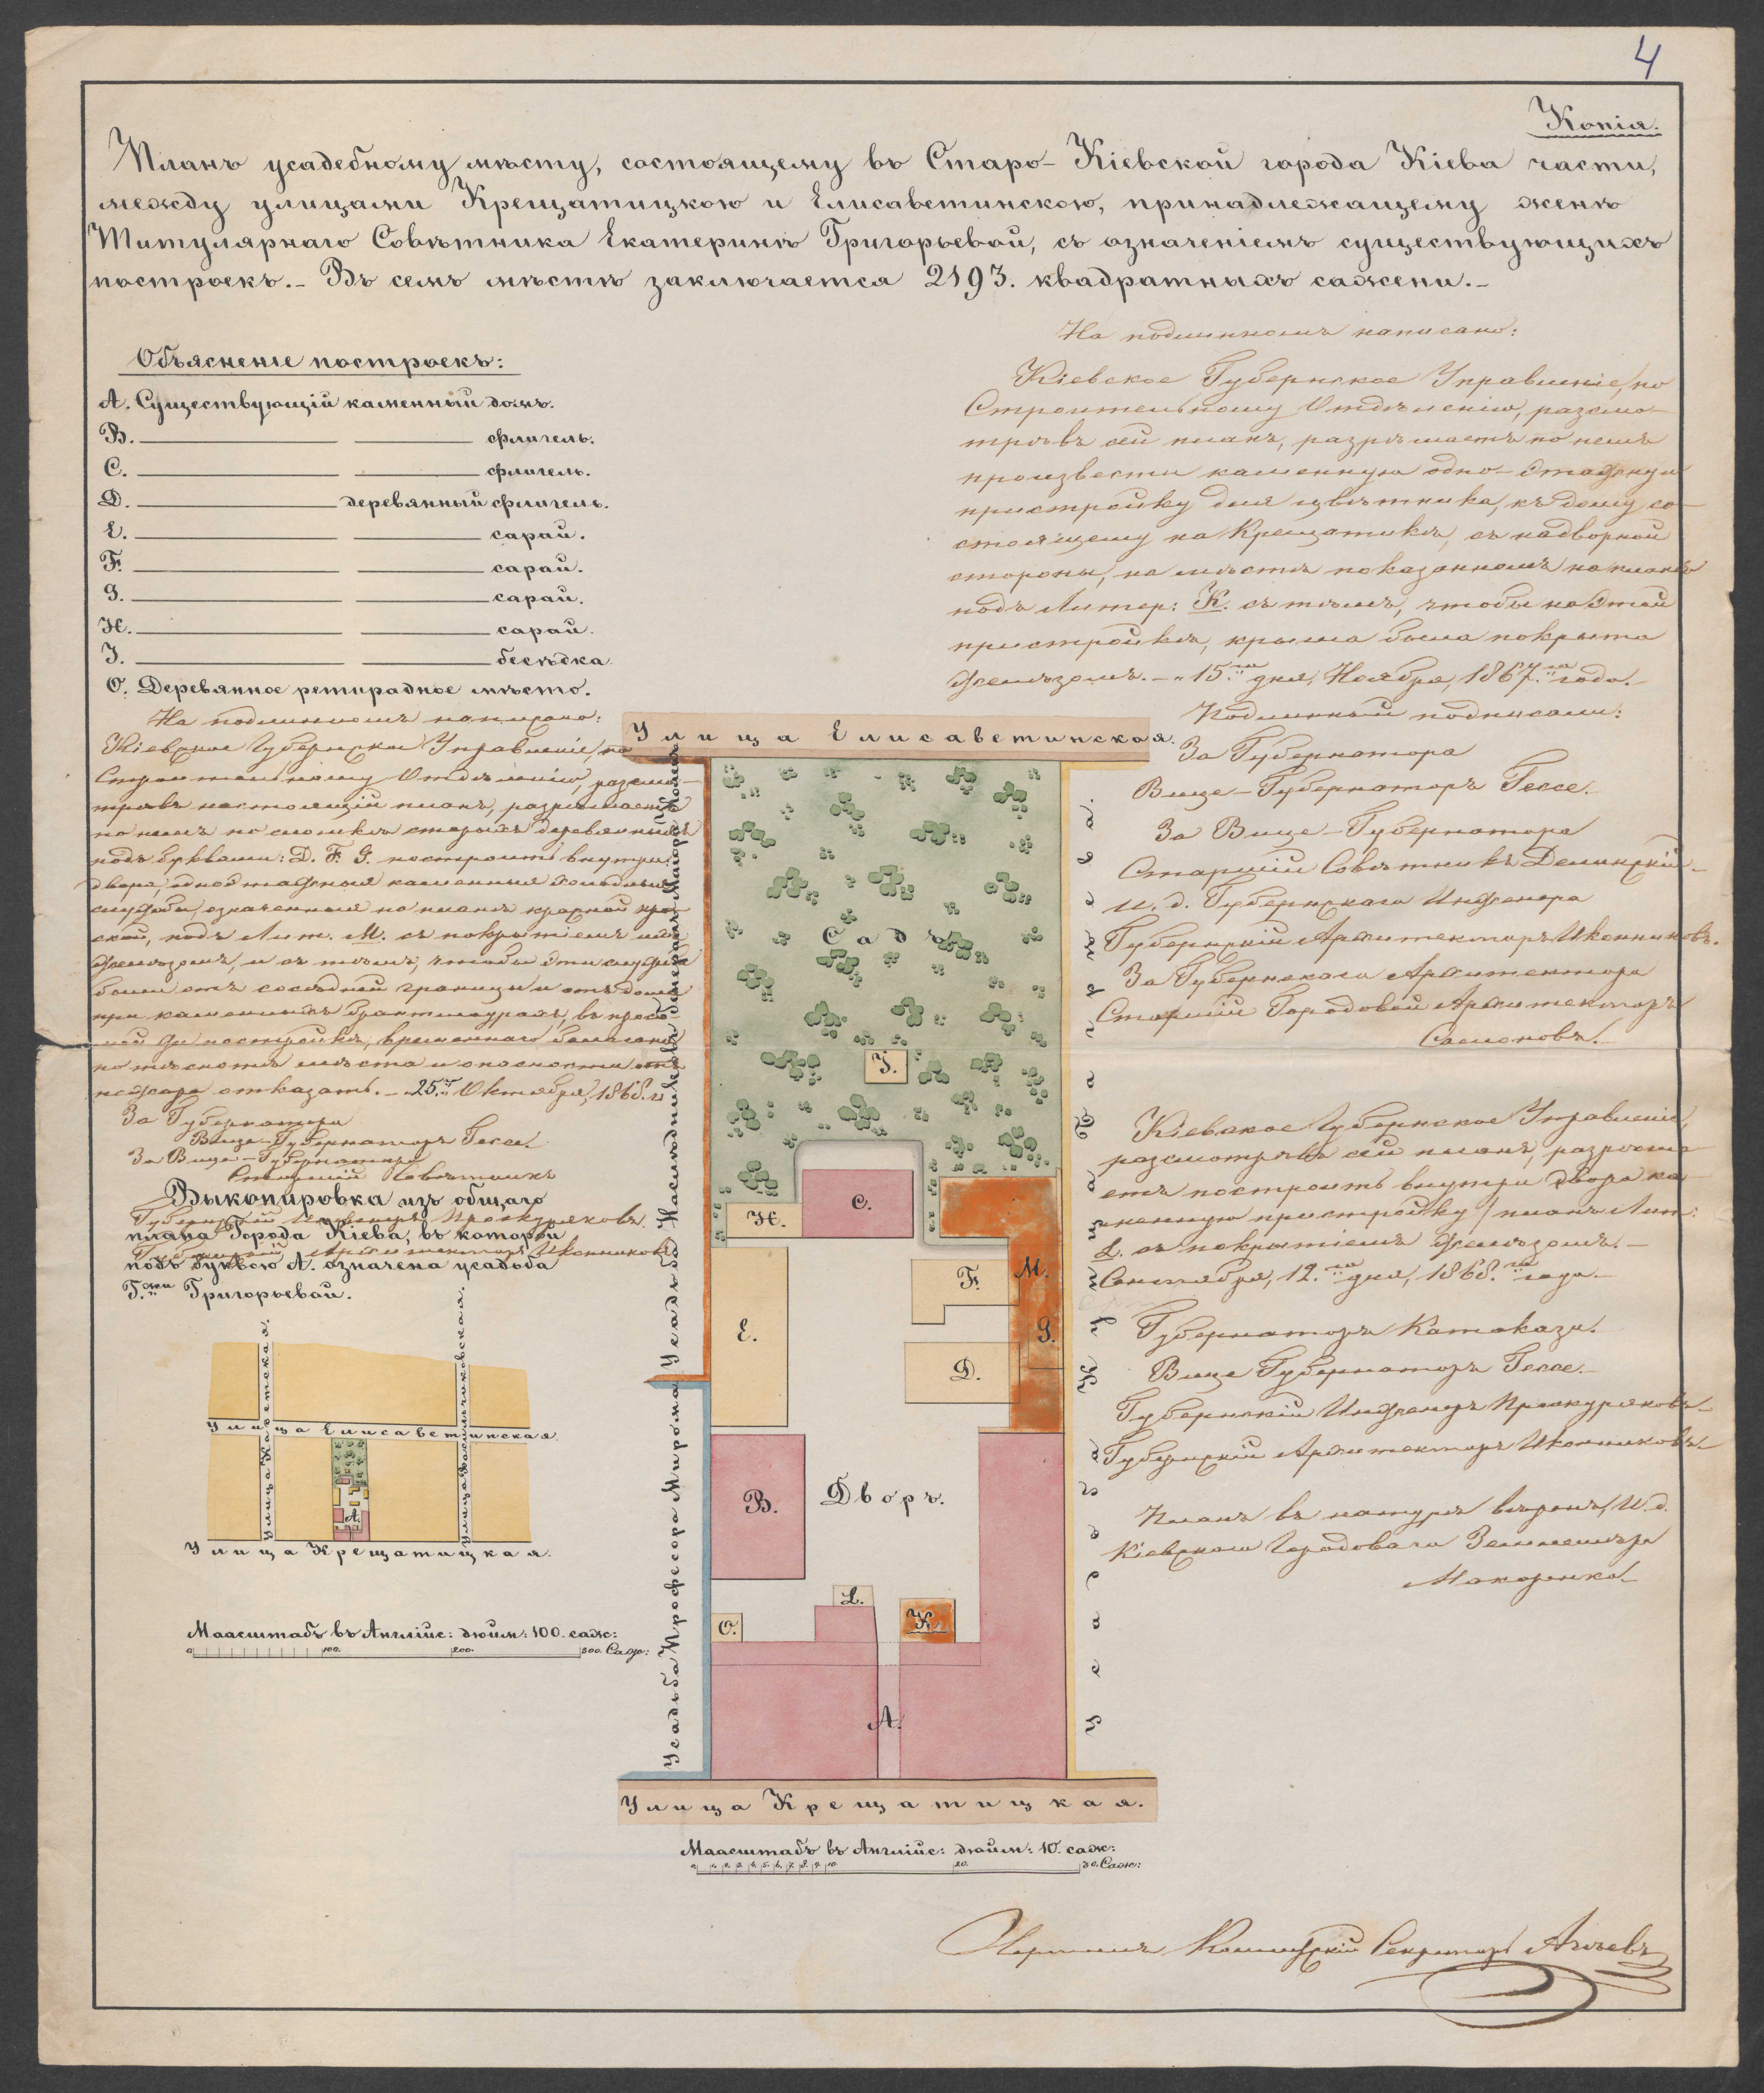 4
Копія.
Планъ усадебному мѣсту, состоящему въ Старо-Кіевской города Кіева части,
между улицами Крещатицкою и Елисаветинскою, принадлежащему женѣ
Титулярнаго Совѣтника Екатеринѣ Григорьевой, съ означеніемъ существующихъ
построекъ.- Въ семъ мѣстѣ заключается 2193. квадратныхъ сажени.-
Объясненіе построекъ:
А. Существующій каменный домъ.
B. флигель.
C. флигель.
D. деревянный флигель.
E. сарай.
F. сарай.
G. сарай.
H. сарай.
J. бесѣдка
O. Деревянное ретирадное мѣсто.
На подлинномъ написано:
Кіевское Губернское Управленіе, по
Строительному Отдѣленію, разсмо-
трѣвъ настоящій планъ, разрѣшаетъ
по немъ по сломкѣ старыхъ деревянныхъ
подъ буквами: D. F. G. построить внутри
двора, одноэтажныя каменныя холодныя
службы, означенныя на планѣ красной кра-
ской, подъ Лит. М. съ покрытіемъ ихъ
желѣзомъ, и съ тѣмъ, чтобы эти службы
были отъ сосѣдней границы и отъ дома
при каменныхъ брантмаурахъ, въ прось-
бѣ же постройкѣ, временнаго балагана
по тѣснотѣ мѣста и опасности отъ
пожара отказать. - 25. Октября, 1868. г.
За Губернатора
Вице-Губернаторъ Гессе.
За Вице-Губернатора
Старшій Совѣтникъ
Губернскій Инженеръ Проскуряковъ.
Губернскій Архитекторъ Иконниковъ
Выкопировка изъ общаго
плана Города Кіева, въ которой
подъ буквою А. означена усадьба
Г.жи Григорьевой.
Улица Елисаветинская.
А.
Улица Крещатицкая.
Маасштабъ въ Англійс: дюйм: 100. саж:
0 100. 200. 300. Саж:
На подлинномъ написано:
Кіевское Губернское Управленіе, по
Строительному Отдѣленію, разсмо-
трѣвъ сей планъ, разрѣшаетъ по немъ
произвести каменную одно-этажную
пристройку для цвѣтника, къ дому со-
стоящему на Крещатикѣ, съ надворной
стороны, на мѣстѣ показанномъ на планѣ
подъ Литер: К. съ тѣмъ, чтобы на этой
пристройкѣ, крыша была покрыта
желѣзомъ. - 15.го дня, Ноября, 1867.го года.-
Подлинный подписали:
За Губернатора
Вице-Губернаторъ Гессе.
За Вице-Губернатора
Старшій Совѣтникъ
И. д. Губернскаго Инженера
Губернскій Архитекторъ Иконниковъ.
За Губернскаго Архитектора
Старшій Городовой Архитекторъ
Кіевское Губернское Управленіе,
разсмотрѣвъ сей планъ, разрѣша-
етъ построить внутри двора ка-
менную пристройку /планъ Лит:
L. съ покрытіемъ желѣзомъ.-
Сентября, 12.го дня, 1868.го года.-
Губернаторъ Катакази.
Вице Губернаторъ Гессе.-
Губернскій Инженеръ Проскуряковъ-
Губернскій Архитекторъ Иконниковъ.-
Планъ въ натурѣ вѣренъ, И. д.
Кіевскаго Городоваго Землемѣра
Макаренко
Улица Елисаветинская.
Садъ
J.
C.
H.
E.
F.
M.
G.
D.
B.
Дворъ.
L.
O.
K.
А.
Улица Крещатицкая.
Усадьба Профессора Мирама
Маасштабъ въ Англійс: дюйм: 10. саж:
0 1. 2. 3. 4. 5. 6. 7. 8. 9. 10. 20. 30. Саж:
Секретарь